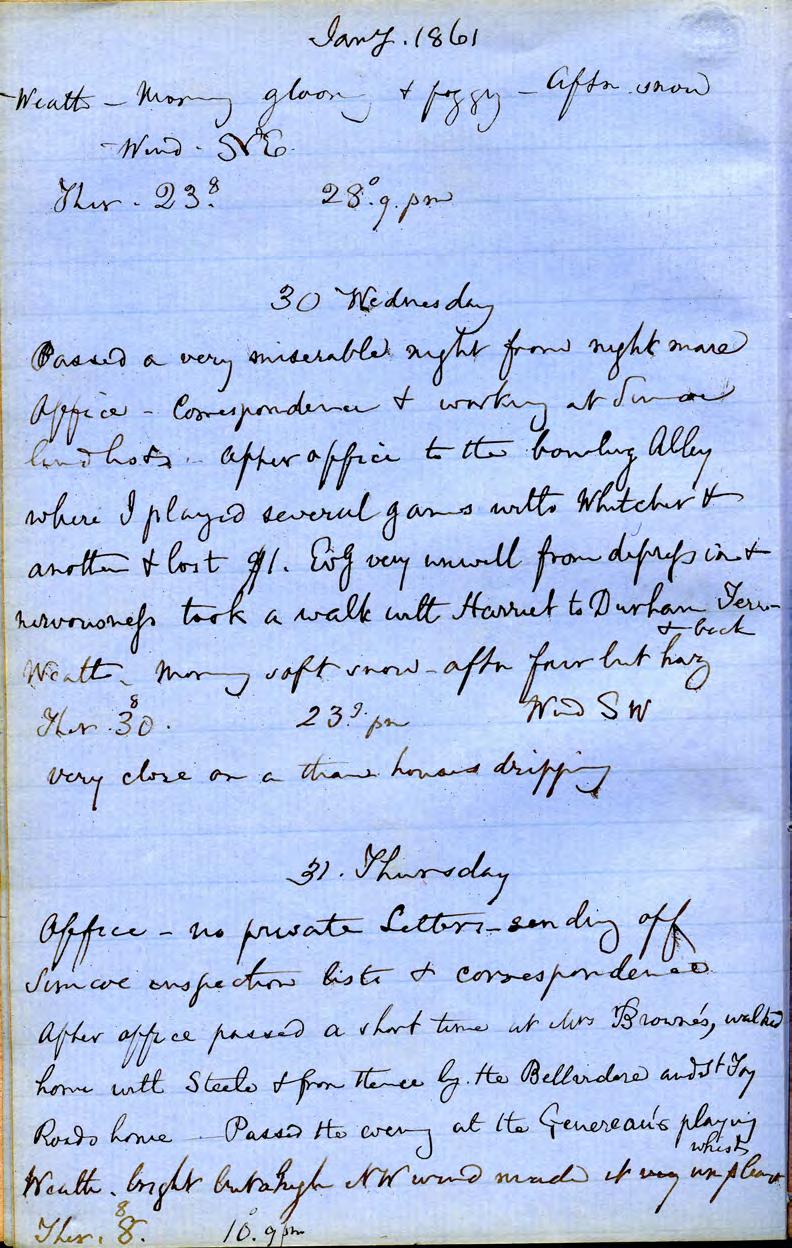 Jany. 1861
Weath - Morning gloomy & foggy - Aftn. snow
Wind - NE
Ther - 23.8 28° 9. pm
30 Wednesday
Passed a very miserable night from night mare
Office - Correspondence & working at Simcoe
land lists - After office to the bowling Alley
where I played several games with Whitcher &
another & lost $1. Evg very unwell from depression &
nervousness took a walk with Harriet to Durham Terr-
& back
Weath. Morning soft snow - aftn fair but hazy
Ther. 30.8 23 9. pm Wind SW
very close on a thaw houses dripping
31. Thursday
Office - no private Letters - sending off
Simcoe inspection lists & correspondence
After office passed a short time at Mrs Browne's, walked
home with Steele & from thence by the Bellvidere and St Foy
Roads home - Passed the evening at the Genereau's playing
whist
Weath. bright but a high NW wind made it very unpleast
Ther. 8.8 10. 9 pm